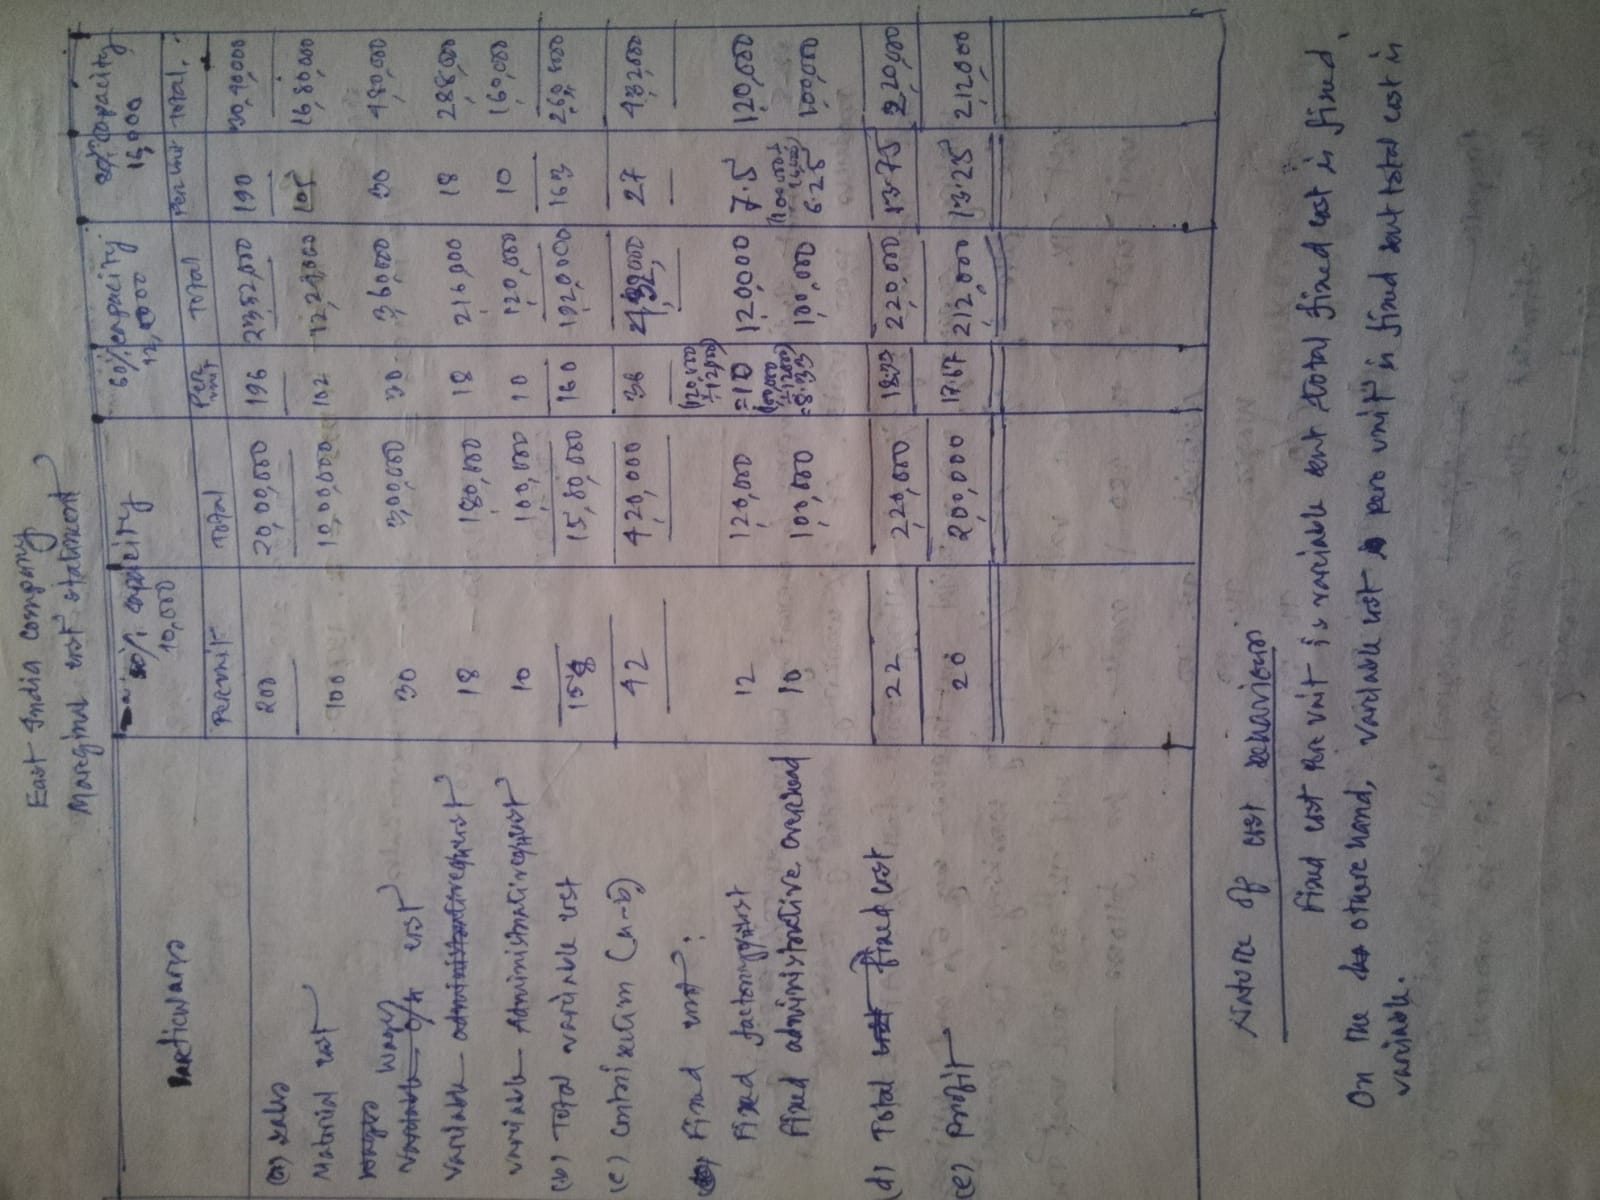 East India Company
Marginal cost statement
Particulars 50% capacity 10,000 60% capacity 12,000 80% capacity 16,000
Per unit Total Per unit Total Per unit Total
(a) Sales 200 20,00,000 196 2352,000 190 30,40,000
Material cost 100 10,00,000 102 12,24,000 105 16,80,000
Wages 30 3,00,000 30 3,60,000 30 480,000
Variable cost 18 180,000 18 216,000 18 288,000
Variable Administrative 10 100,000 10 120,000 10 160,000
(b) Total variable cost 158 15,80,000 160 1920,000 163
(c) Contribution (a-b) 42 420,000 36 27 432,000
Fixed cost:
(120,000 ÷ 12,000)
Fixed factory 12 120,000 =10 120000 7.5 120,000
Fixed administrative overhead 10 100,000 =8.33 100,000 6.25 100,000
(d) Total fixed cost 22 220,000 18.33 220,000 13.75 220,000
(e) Profit 20 200,000 17.67 212000 13.25 212000
Nature of cost behaviour
Fixed cost per unit is variable but total fixed cost is fixed.
On the other hand, variable cost per unit is fixed but total cost is
variable.